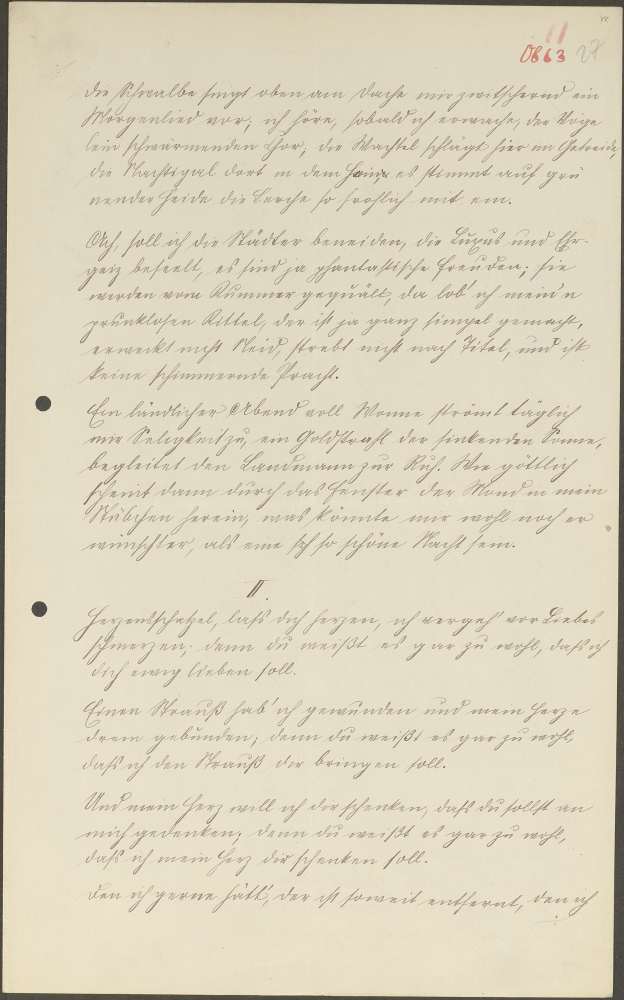 11
0663 27
die Schwalbe singt oben am Dache mir zwitschernd ein
Morgenlied vor, ich höre, sobald ich erwache, der Vöge
lein schwärmenden Chor, die Wachtel schlägt hier im Getreide,
die Nachtigal dort in dem Haine es stimmt auf grü
nender Heide die Lerche so fröhlich mit ein.
Ach, soll ich die Städter beneiden, die Luxus und Ehr-
geiz beseelt, es sind ja phantastische Freuden; sie
werden vom Kummer gequält, da lob' ich mein'n
prunklosen Kittel, der ist ja ganz simpel gemacht,
erweckt nicht Neid, strebt nicht nach Titel, und ist
keine schimmernde Pracht.
Ein ländlicher Abend voll Wonne strömt täglich
mir Seligkeit zu, ein Goldstrahl der sinkenden Sonne,
begleitet den Landmann zur Ruh. Wie göttlich
scheint dann durch das Fenster der Mond in mein
Stübchen herein, was könnte mir wohl noch er
wünschter, als eine so schöne Nacht sein.
II.
Herzensschatzel, lass dich herzen, ich vergeh' vor Liebes
schmerzen; denn du weißt es gar zu wohl, dass ich
dich ewig lieben soll.
Einen Strauß hab' ich gewunden und mein Herze
drein gebunden; denn du weißt es gar zu wohl,
dass ich den Strauß dir bringen soll.
Und mein Herz will ich dir schenken, dass du sollst an
mich gedenken; denn du weißt es gar zu wohl,
dass ich mein Herz dir schenken soll.
Den ich gerne hätt', der ist soweit entfernt, den ich